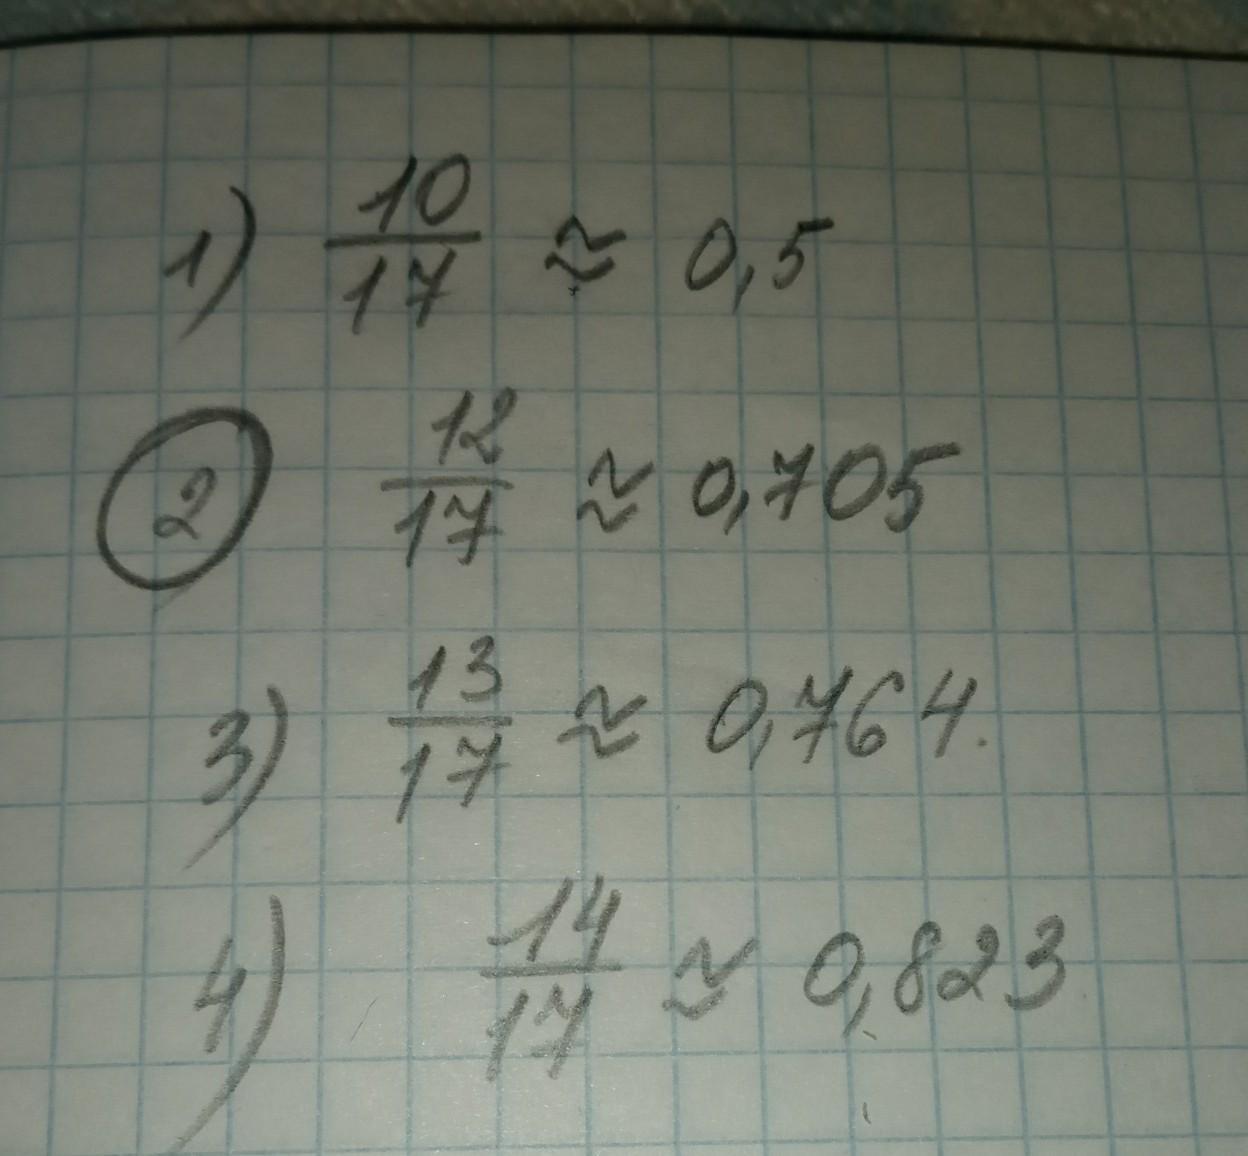 1) 10/17 ≈ 0,5
2 12/17 ≈ 0,705
3) 13/17 ≈ 0,764.
4) 14/17 ≈ 0,823